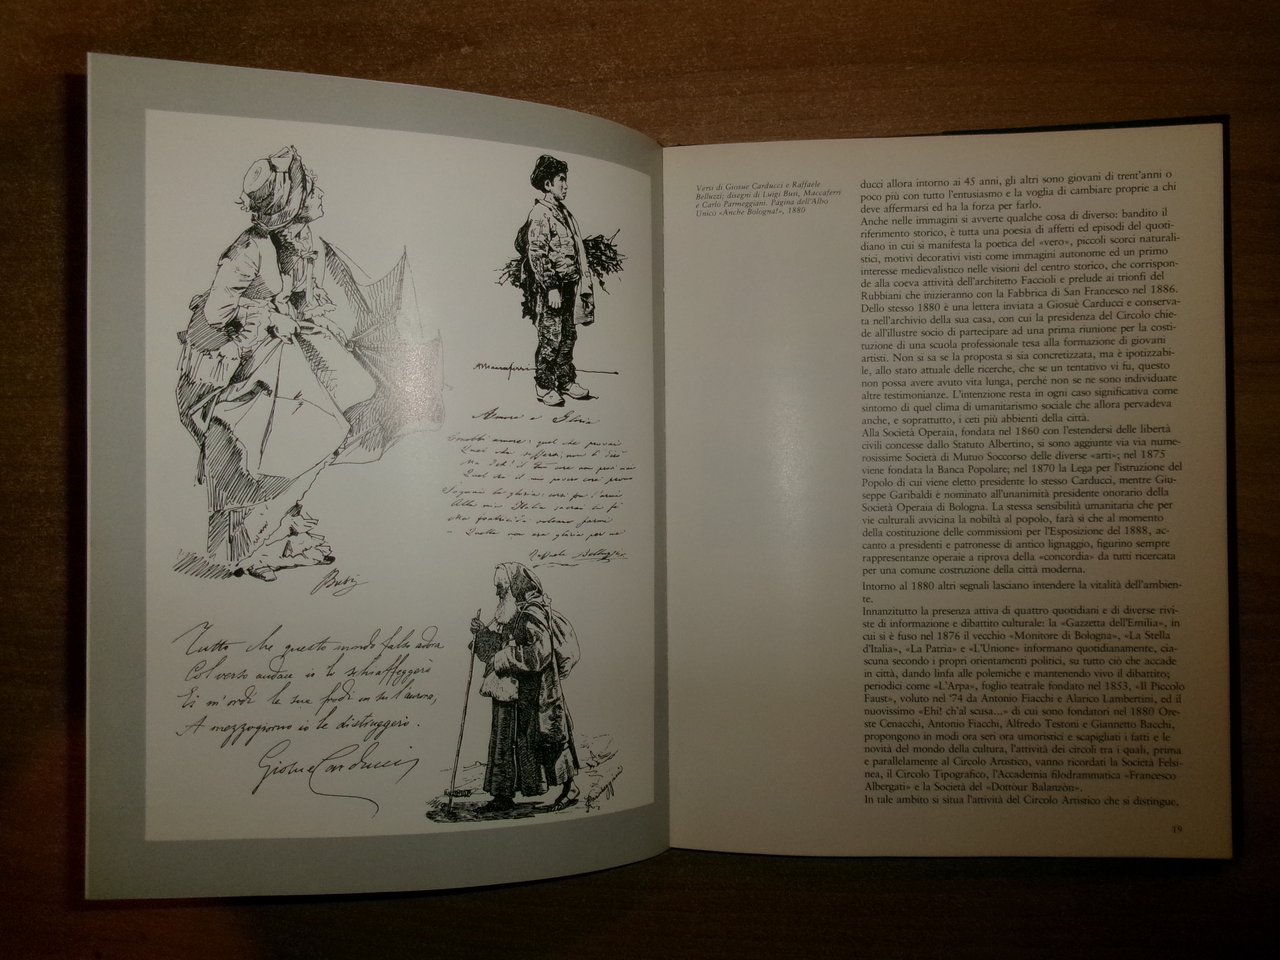 Busi
AMaccaferri
Amore e Gloria
Raffaele Belluzzi
Tutto che questo mondo falso adora
Col verso audace io lo schiaffeggerò
Ei m'ordì le sue frodi in su l'aurora,
A mezzogiorno io le distruggerò.
Giosue Carducci
Versi di Giosue Carducci e Raffaele
Belluzzi; disegni di Luigi Busi, Maccaferri
e Carlo Parmeggiani. Pagina dell'Albo
Unico «Anche Bologna!», 1880
ducci allora intorno ai 45 anni, gli altri sono giovani di trent'anni o
poco più con tutto l'entusiasmo e la voglia di cambiare proprie a chi
deve affermarsi ed ha la forza per farlo.
Anche nelle immagini si avverte qualche cosa di diverso: bandito il
riferimento storico, è tutta una poesia di affetti ed episodi del quoti-
diano in cui si manifesta la poetica del «vero», piccoli scorci naturali-
stici, motivi decorativi visti come immagini autonome ed un primo
interesse medievalistico nelle visioni del centro storico, che corrispon-
de alla coeva attività dell'architetto Faccioli e prelude ai trionfi del
Rubbiani che inizieranno con la Fabbrica di San Francesco nel 1886.
Dello stesso 1880 è una lettera inviata a Giosuè Carducci e conserva-
ta nell'archivio della sua casa, con cui la presidenza del Circolo chie-
de all'illustre socio di partecipare ad una prima riunione per la costi-
tuzione di una scuola professionale tesa alla formazione di giovani
artisti. Non si sa se la proposta si sia concretizzata, ma è ipotizzabi-
le, allo stato attuale delle ricerche, che se un tentativo vi fu, questo
non possa avere avuto vita lunga, perché non se ne sono individuate
altre testimonianze. L'intenzione resta in ogni caso significativa come
sintomo di quel clima di umanitarismo sociale che allora pervadeva
anche, e soprattutto, i ceti più abbienti della città.
Alla Società Operaia, fondata nel 1860 con l'estendersi delle libertà
civili concesse dallo Statuto Albertino, si sono aggiunte via via nume-
rosissime Società di Mutuo Soccorso delle diverse «arti»; nel 1875
viene fondata la Banca Popolare; nel 1870 la Lega per l'istruzione del
Popolo di cui viene eletto presidente lo stesso Carducci, mentre Giu-
seppe Garibaldi è nominato all'unanimità presidente onorario della
Società Operaia di Bologna. La stessa sensibilità umanitaria che per
vie culturali avvicina la nobiltà al popolo, farà sì che al momento
della costituzione delle commissioni per l'Esposizione del 1888, ac-
canto a presidenti e patronesse di antico lignaggio, figurino sempre
rappresentanze operaie a riprova della «concordia» da tutti ricercata
per una comune costruzione della città moderna.
Intorno al 1880 altri segnali lasciano intendere la vitalità dell'ambien-
te.
Innanzitutto la presenza attiva di quattro quotidiani e di diverse rivi-
ste di informazione e dibattito culturale: la «Gazzetta dell'Emilia», in
cui si è fuso nel 1876 il vecchio «Monitore di Bologna», «La Stella
d'Italia», «La Patria» e «L'Unione» informano quotidianamente, cia-
scuna secondo i propri orientamenti politici, su tutto ciò che accade
in città, dando linfa alle polemiche e mantenendo vivo il dibattito;
periodici come «L'Arpa», foglio teatrale fondato nel 1853, «Il Piccolo
Faust», voluto nel '74 da Antonio Fiacchi e Alarico Lambertini, ed il
nuovissimo «Ehi! ch'al scusa...» di cui sono fondatori nel 1880 Ore-
ste Cenacchi, Antonio Fiacchi, Alfredo Testoni e Giannetto Bacchi,
propongono in modi ora seri ora umoristici e scapigliati i fatti e le
novità del mondo della cultura, l'attività dei circoli tra i quali, prima
e parallelamente al Circolo Artistico, vanno ricordati la Società Felsi-
nea, il Circolo Tipografico, l'Accademia filodrammatica «Francesco
Albergati» e la Società del «Dottòur Balanzòn».
In tale ambito si situa l'attività del Circolo Artistico che si distingue,
19